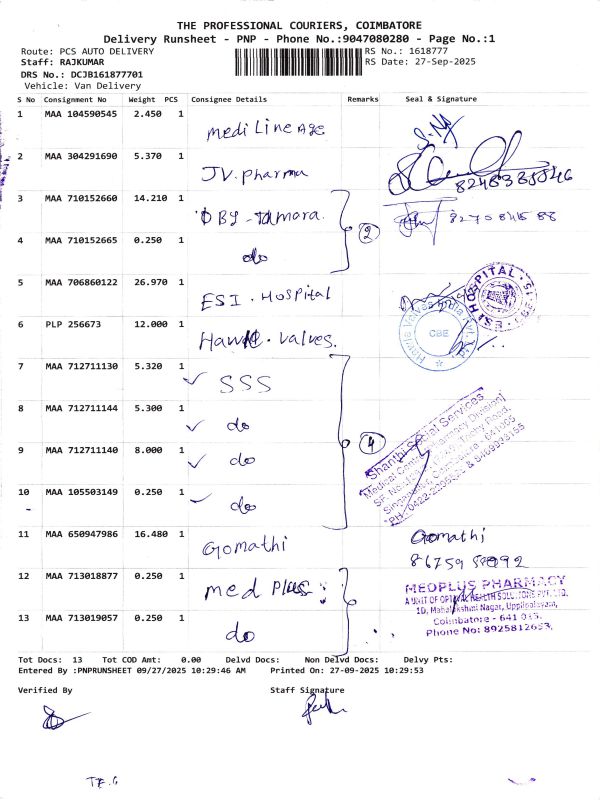 THE PROFESSIONAL COURIERS, COIMBATORE
Delivery Runsheet - PNP - Phone No.:9047080280 - Page No.:1
Route: PCS AUTO DELIVERY RS No.: 1618777
Staff: RAJKUMAR RS Date: 27-Sep-2025
DRS No.: DCJB161877701
Vehicle: Van Delivery
S No Consignment No Weight PCS Consignee Details Remarks Seal & Signature
1 MAA 104590545 2.450 1 Medi Lineage
2 MAA 304291690 5.370 1 JV. Pharma
3 MAA 710152660 14.210 1
4 MAA 710152665 0.250 1 do
2
5 MAA 706860122 26.970 1 ESI. Hospital
ESI HOSPITAL
6 PLP 256673 12.000 1 Valves.
CBE
7 MAA 712711130 5.320 1 SSS
8 MAA 712711144 5.300 1 do
9 MAA 712711140 8.000 1 do
10 MAA 105503149 0.250 1 do
4
Shanthi Social Services
11 MAA 650947986 16.480 1 Gomathi Gomathi
12 MAA 713018877 0.250 1 med plus
13 MAA 713019057 0.250 1 do
MEDPLUS PHARMACY
1D, Mahalakshmi Nagar, Uppilipalayam,
Coimbatore - 641 015.
Phone No: 8925812653,
Tot Docs: 13 Tot COD Amt: 0.00 Delvd Docs: Non Delvd Docs: Delvy Pts:
Entered By :PNPRUNSHEET 09/27/2025 10:29:46 AM Printed On: 27-09-2025 10:29:53
Verified By Staff Signature